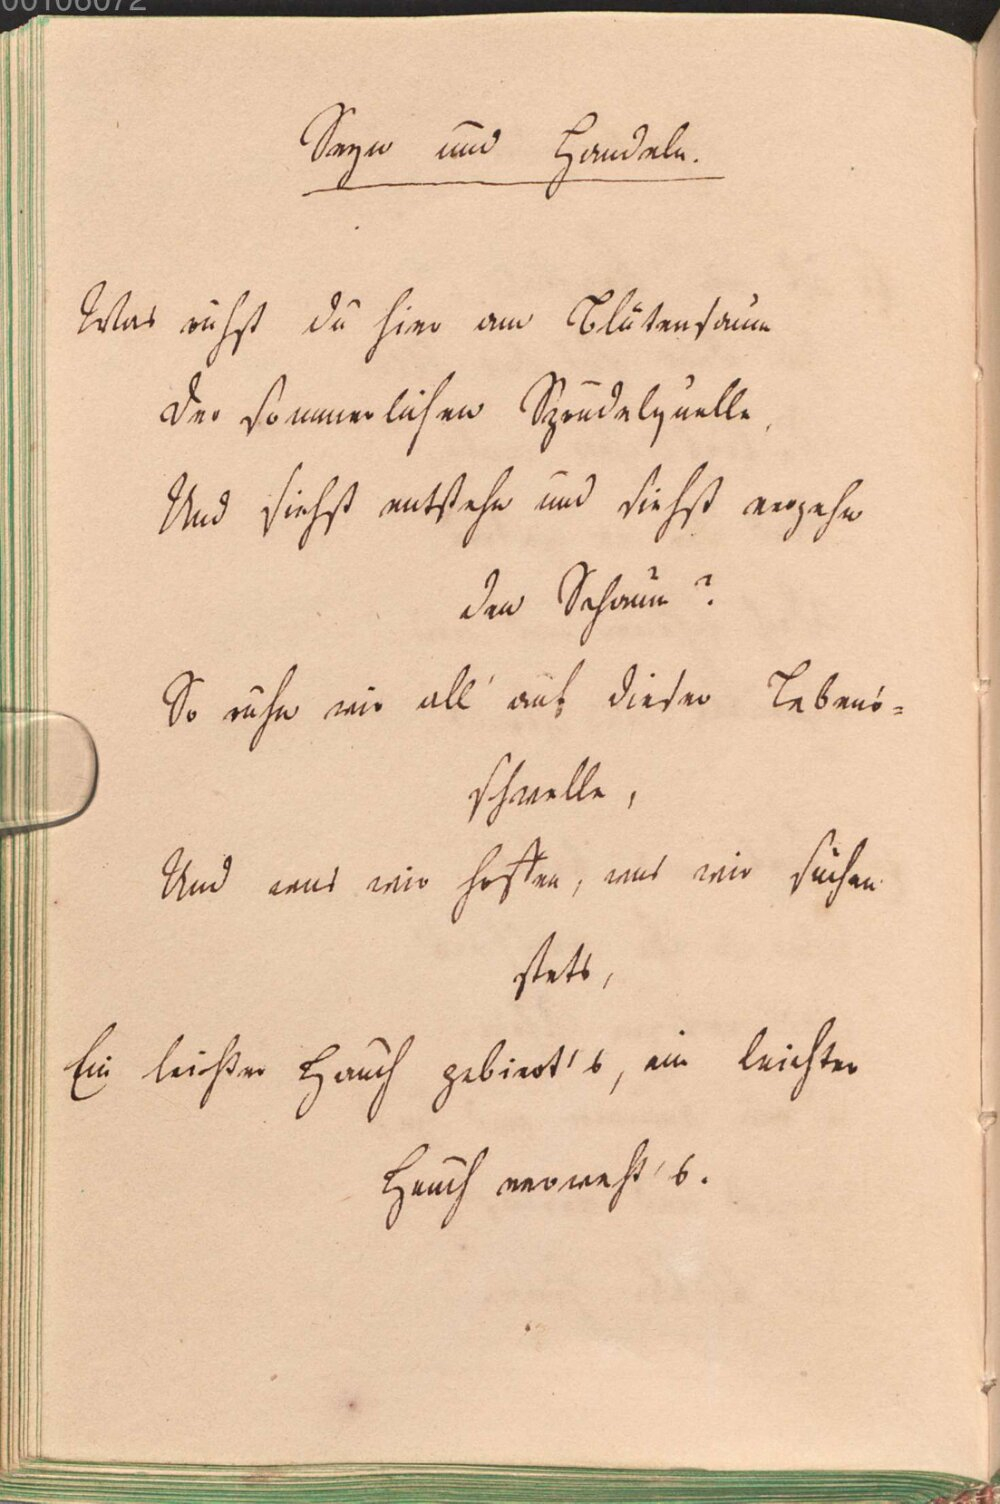 00106072
Seyn und Handeln.
Was ruhst du hier am Blütensaum
Der sommerlichen Sprudelquelle,
Und siehst entstehn und siehst vergehn
den Schaum?
So ruhn wir all' auf dieser Lebens=
schwelle,
Und was wir hoffen, was wir suchen
stets,
Ein leichter Hauch gebiert's, ein leichter
Hauch verweht's.